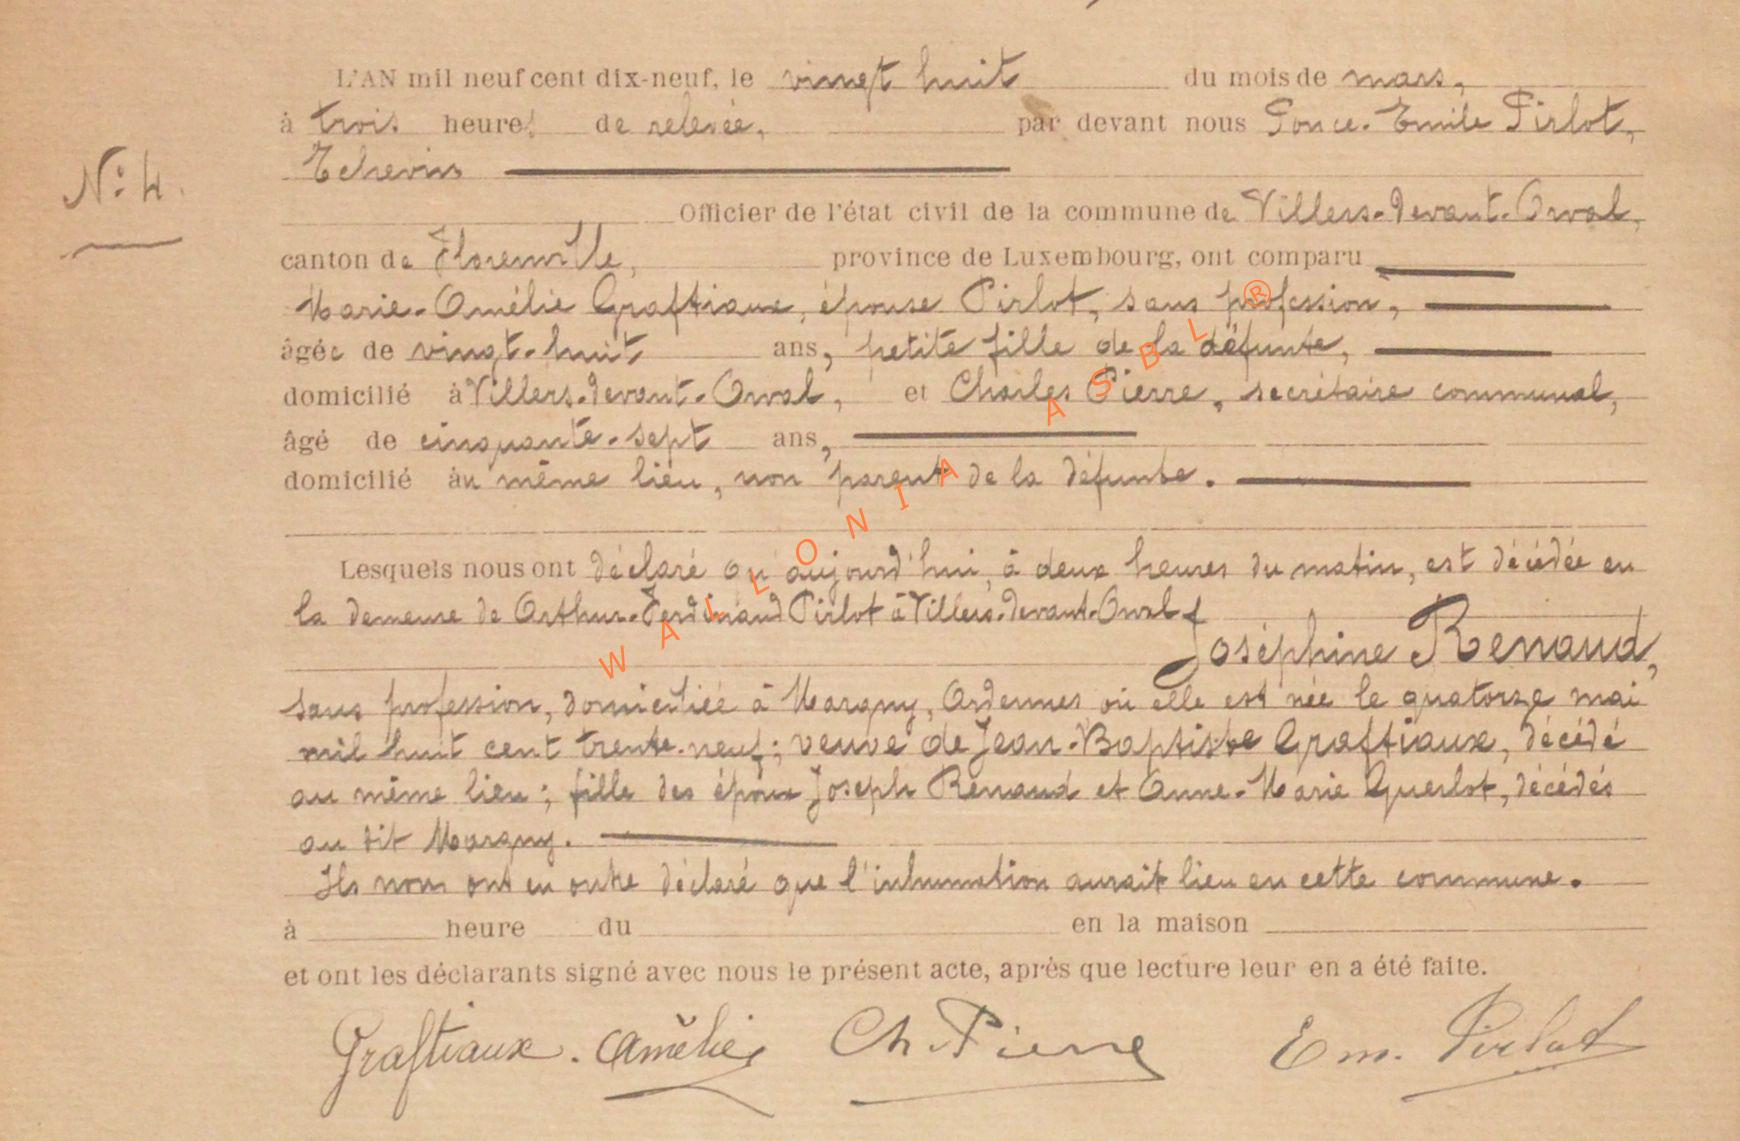 L'AN mil neuf cent dix-neuf, le vingt huit du mois de mars,
à trois heures de relevée, par devant nous Ponce-Emile Pirlot,
Echevin
N° 4.
Officier de l'état civil de la commune de Villers-devant-Orval,
canton de Florenville, province de Luxembourg, ont comparu
Marie-Amélie Graftiaux, épouse Pirlot, sans profession,
âgée de vingt-huit ans, petite fille de la défunte,
domicilié à Villers-devant-Orval, et Charles Pierre, secrétaire communal,
âgé de cinquante-sept ans,
domicilié au même lieu, non parent de la défunte.
Lesquels nous ont déclaré qu'aujourd'hui, à deux heures du matin, est décédée en
la demeure de Arthur-Ferdinand Pirlot à Villers-devant-Orval
Joséphine Renaud,
sans profession, domiciliée à Margny, Ardennes où elle est née le quatorze mai
mil huit cent trente-neuf; veuve de Jean-Baptiste Graftiaux, décédé
au même lieu; fille des époux Joseph Renaud et Anne-Marie Guerlot, décédés
au dit Margny.
Ils nous ont en outre déclaré que l'inhumation aurait lieu en cette commune.
à heure du en la maison
et ont les déclarants signé avec nous le présent acte, après que lecture leur en a été faite.
Graftiaux. Amélie Ch. Pierre Em. Pirlot
WALLONIA ASBL ®